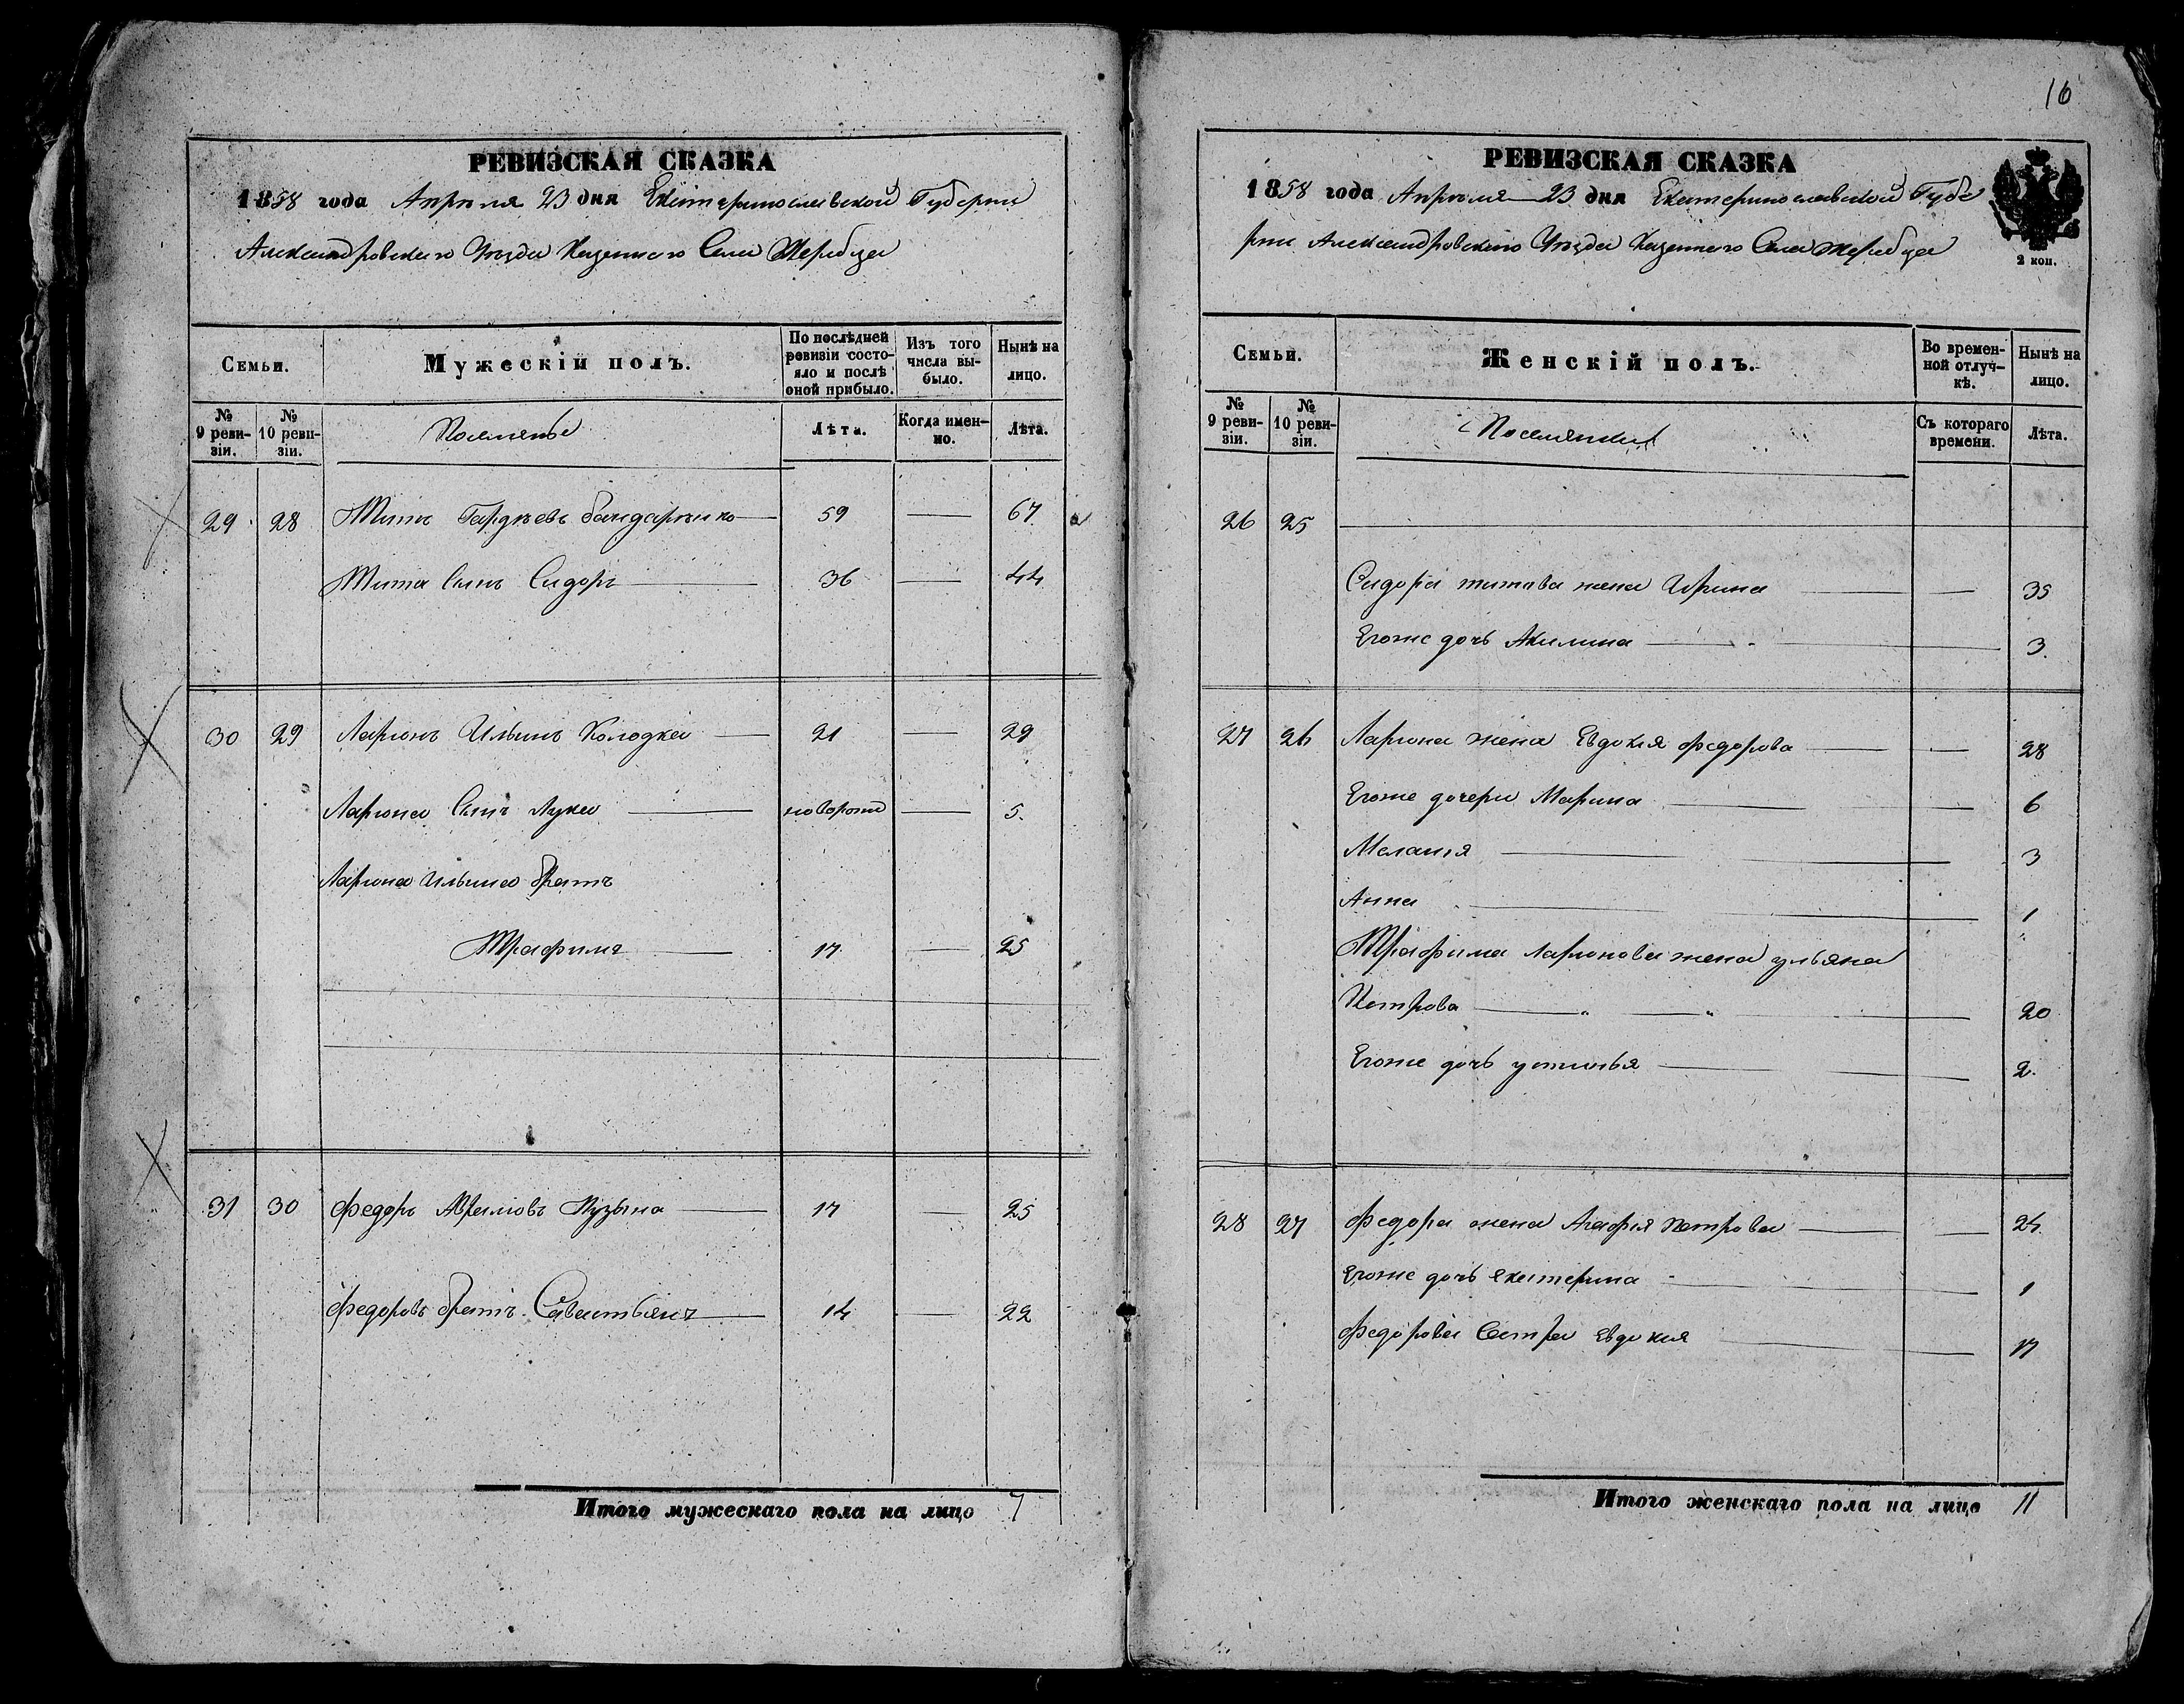 РЕВИЗСКАЯ СКАЗКА
1858 года Апреля 23 дня Екатеринославской Губернии
Александровского Уезда Казенного Села Жеребца
Семьи.
Мужескій полъ.
По послѣдней ревизіи состояло и послѣ оной прибыло.
Изъ того числа выбыло.
Нынѣ на лицо.
№ 9 ревизіи.
№ 10 ревизіи.
Поселяне
Лѣта.
Когда именно.
Лѣта.
29 28 Титъ Гардѣевъ Бандаренко 59 — 67
Тита Сынъ Сидоръ 36 — 44
30 29 Ларионъ Ильинъ Колодка 21 — 29
Лариона Сынъ Лука новорож — 5
Лариона Ильина братъ
Трафимъ 17 — 25
31 30 Федоръ Аврамовъ 17 — 25
Федоровъ братъ Савастьянъ 14 — 22
Итого мужескаго пола на лицо 7
16
РЕВИЗСКАЯ СКАЗКА
1858 года Апреля 23 дня Екатеринославской Губе
рнии Александровского Уезда Казенного Села Жеребца
2 коп.
Семьи.
Женскій полъ.
Во временной отлучкѣ.
Нынѣ на лицо.
№ 9 ревизіи.
№ 10 ревизіи.
Поселянки
Съ котораго времени.
Лѣта.
26 25
Сидора титова жена Ирина — 35
Егоже дочь Акилина 3
27 26 Лариона жена Евдокия федорова — 28
Егоже дочери Марина — 6
Мелания 3
Анна 1
Трафима Ларионова жена ульяна
Петрова 20
Егоже дочь устинья 2
28 27 Федора жена Агафия петрова — 24
Егоже дочь екатерина 1
Федорова Сестра евдокия 17
Итого женскаго пола на лицо 11